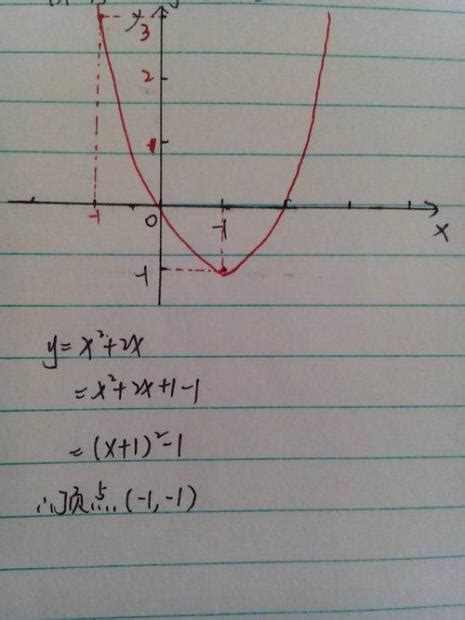 y
3
2
1
-1 0 -1 x
-1
y=x²+2x
=x²+2x+1-1
=(x+1)²-1
∴顶点(-1,-1)